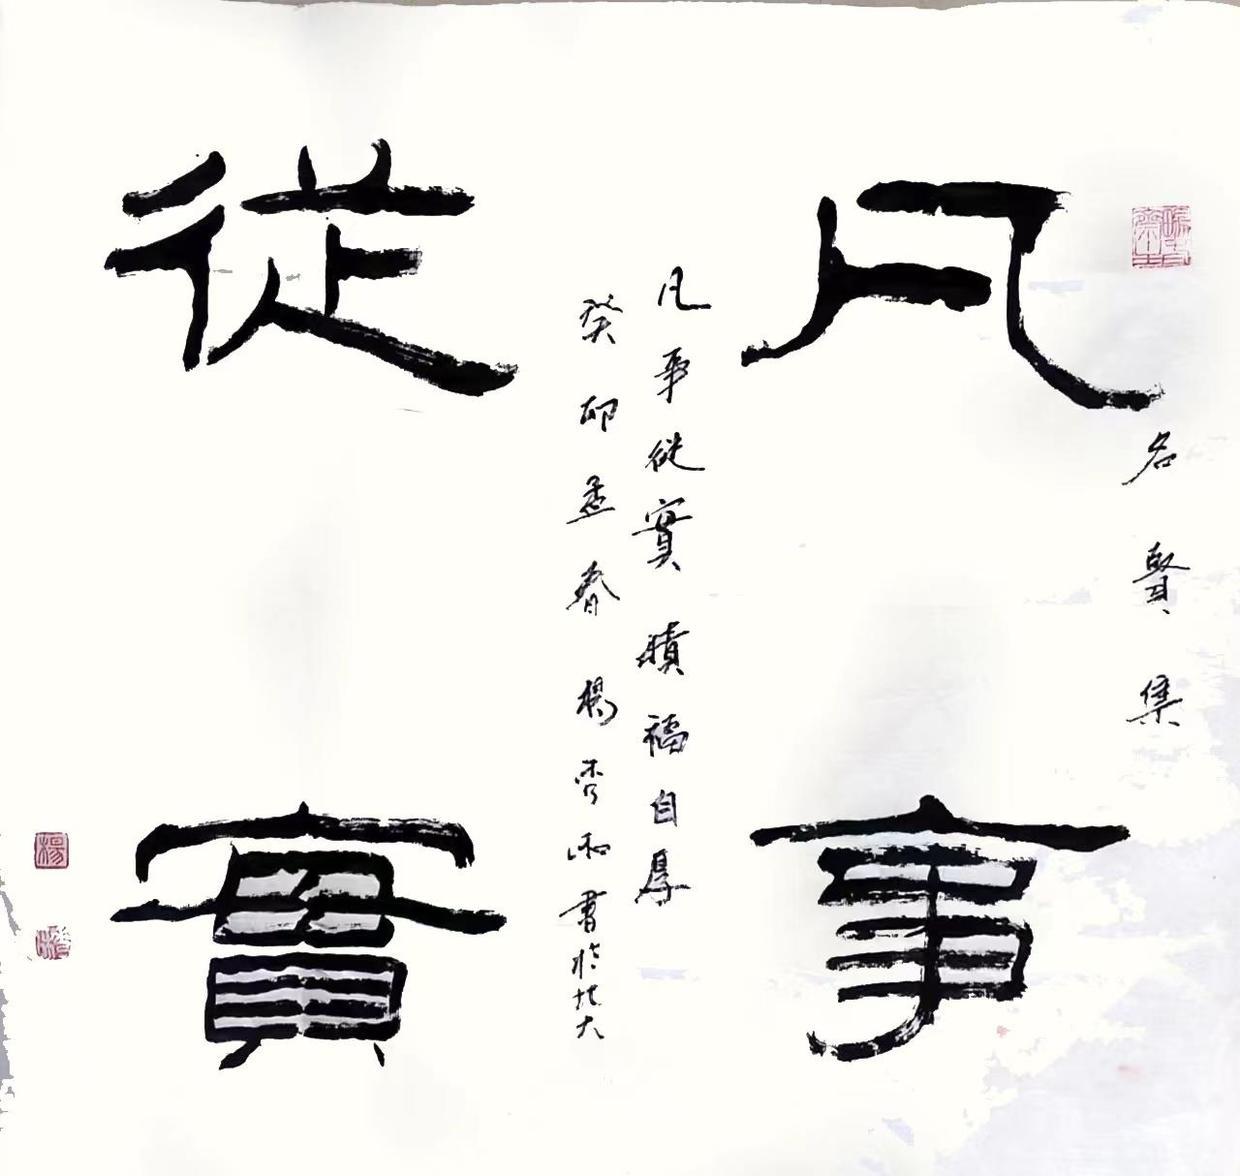 名賢集
凡事
凡事從實積福自厚
癸卯孟春楊雨書於北大
從實
楊